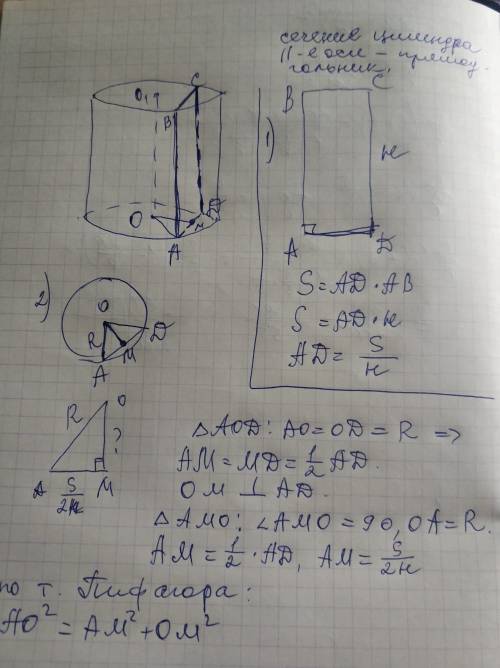 сечение цилиндра
||-е оси – прямоу-
гольник.
O₁
C
B
O
M
D
A
1)
B
C
H
A
D
S = AD · AB
S = AD · H
AD = S/H
2)
O
R
D
M
A
O
R
?
A
S/2H
M
△AOD: AO = OD = R =>
AM = MD = 1/2 AD.
OM ⊥ AD.
△AMO: ∠AMO = 90, OA = R.
AM = 1/2 · AD, AM = S/2H
по т. Пифагора:
AO² = AM² + OM²